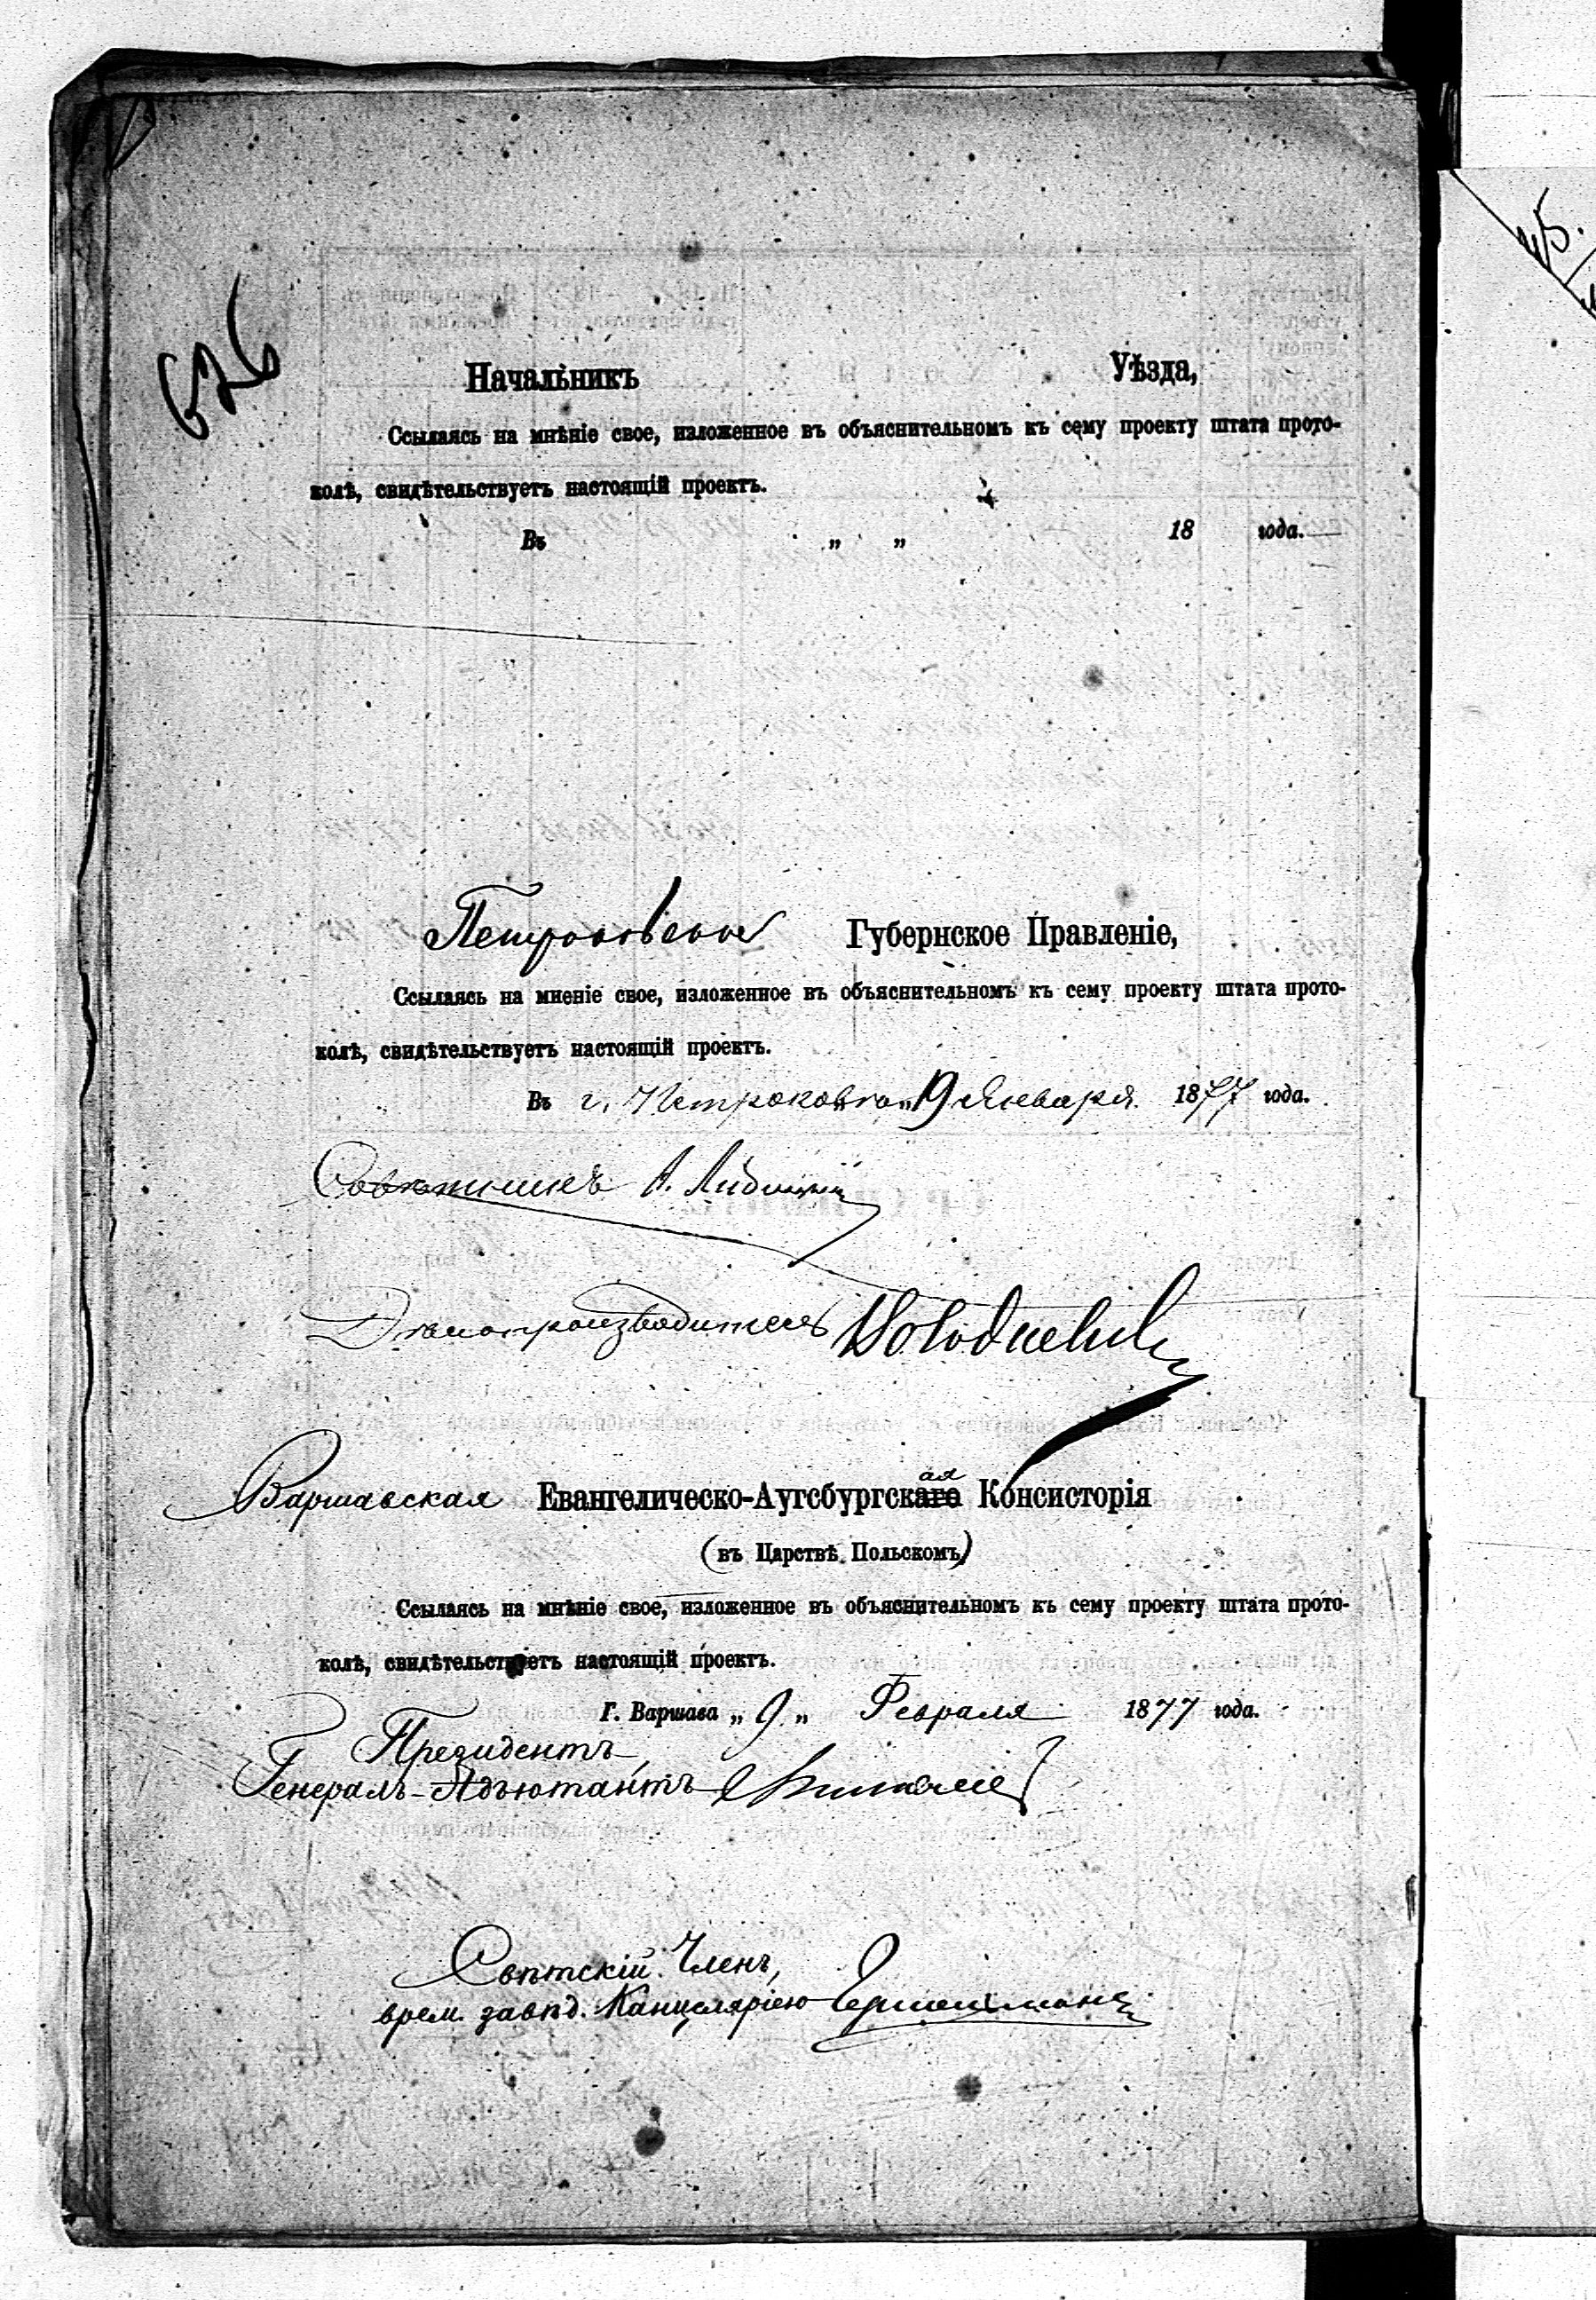 626
Начальникъ Уѣзда,
Ссылаясь на мнѣніе свое, изложенное въ объяснительномъ къ сему проекту штата прото-
колѣ, свидѣтельствуетъ настоящій проектъ.
Въ „ „ 18 года.
Петроковское Губернское Правленіе,
Ссылаясь на мненіе свое, изложенное въ объяснительномъ къ сему проекту штата прото-
колѣ, свидѣтельствуетъ настоящій проектъ.
Въ г. Петроковѣ „19 Января 1877 года.
Совѣтникъ А.
Дѣлопроизводитель
Варшавская Евангелическо-Аугсбургская Консисторія
(въ Царствѣ Польскомъ)
Ссылаясь на мнѣніе свое, изложенное въ объяснительномъ къ сему проекту штата прото-
колѣ, свидѣтельствуетъ настоящій проектъ.
Г. Варшава „ 9 „ Февраля 1877 года.
Президентъ
Генералъ-Адъютантъ
Свѣтскій Членъ,
врем. завѣд. Канцеляріею